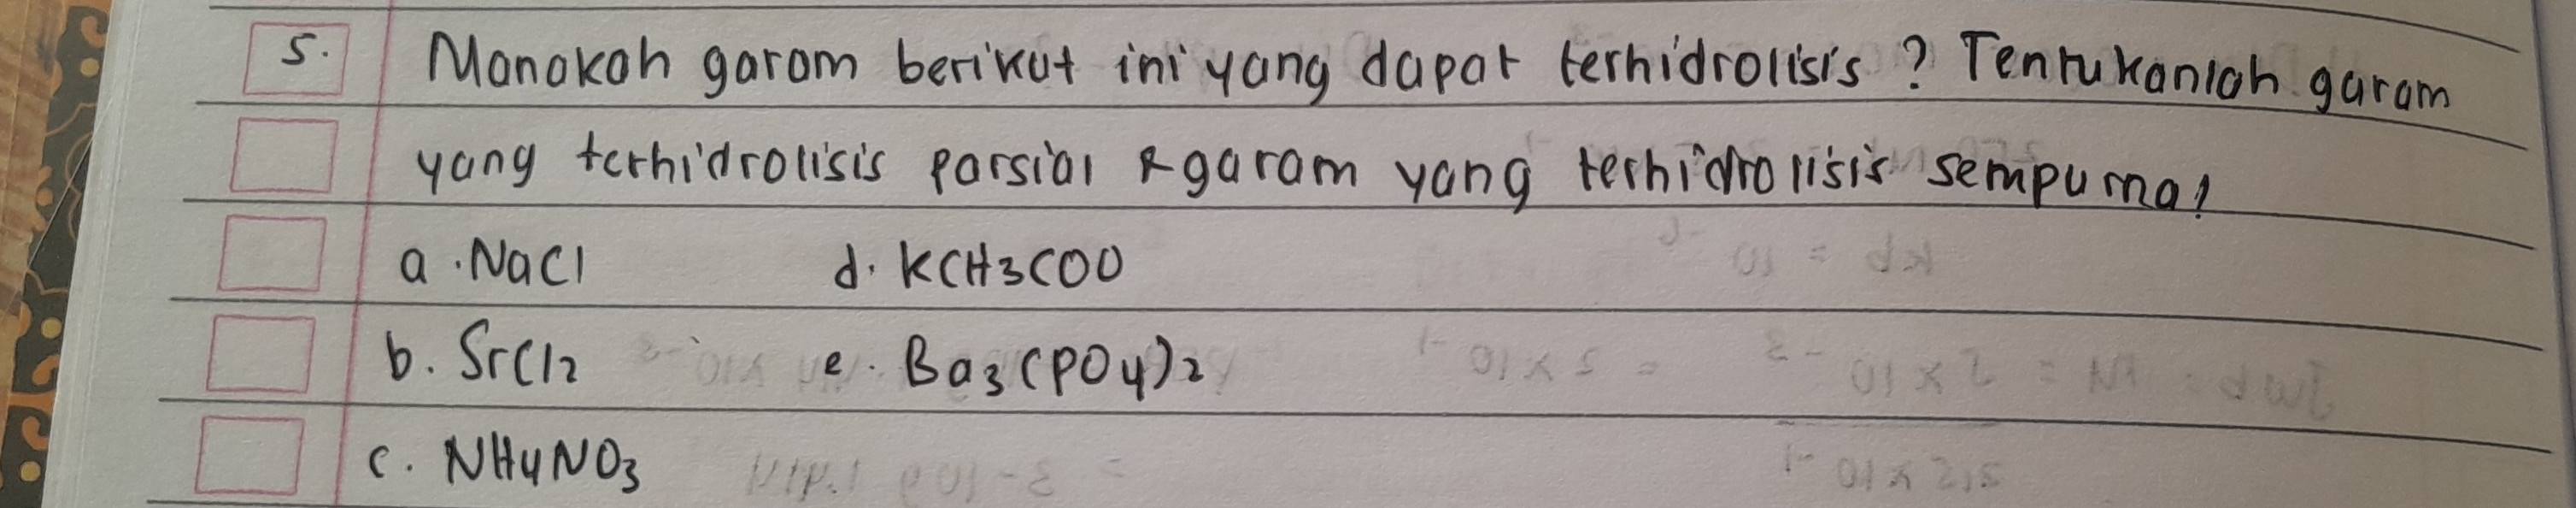 5. Manakah garam berikut ini yang dapat terhidrolisis? Tentukanlah garam
yang terhidrolisis parsial & garam yang terhidrolisis sempurna!
a. NaCl d. KCH3COO
b. SrCl2 e. Ba3(PO4)2
c. NH4NO3